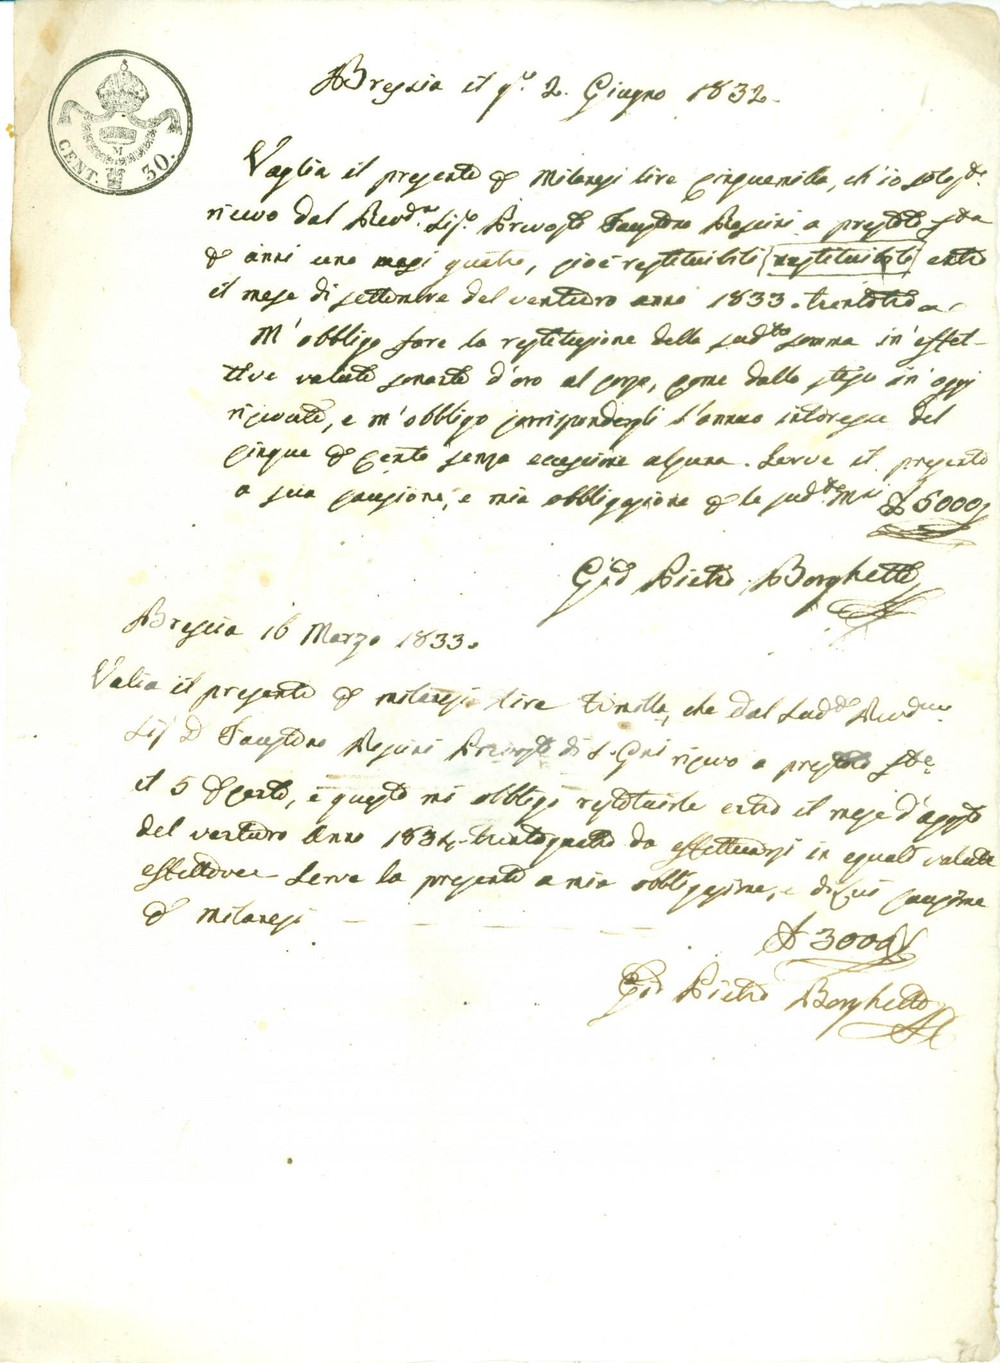 CENT. 30.
M
Brescia il g.º 2. Giugno 1832.
Vaglia il presente p Milanesi lire cinquemilla, ch'io
ricevo dal Revd.º Sig.r Prevosto Faustino Rossini a prestito
p anni uno mesi quatro, cioè restituibili restituibili entro
il mese di settembre del venturo anno 1833. trentatrè
M'obbligo fare la restituzione della sud.ta somma in'effet-
tive valute sonanti d'oro al corso, come dallo stesso in'oggi
ricevute, e m'obbligo corrispondergli l'annuo interesse del
cinque p cento senza eccezione alcuna. Serve il presente
a sua cauzione, e mia obbligazione p le sud.te Mni £ 5000
Gio Pietro Borghetti
Brescia 16 Marzo 1833.
Valia il presente p milanesi lire tremilla, che dal Sud.to Revd.mo
Sig D Faustino Rossini Prevosto di S. ricevo a prestito
il 5 p cento, e questo mi obbligo restituirle entro il mese d'agosto
del venturo Anno 1834. trentaquatro da effettuarsi in eguali valute
effettive Serve la presente a mia obbligazione, e di Lui cauzione
p milanesi £ 3000
Gio Pietro Borghetti